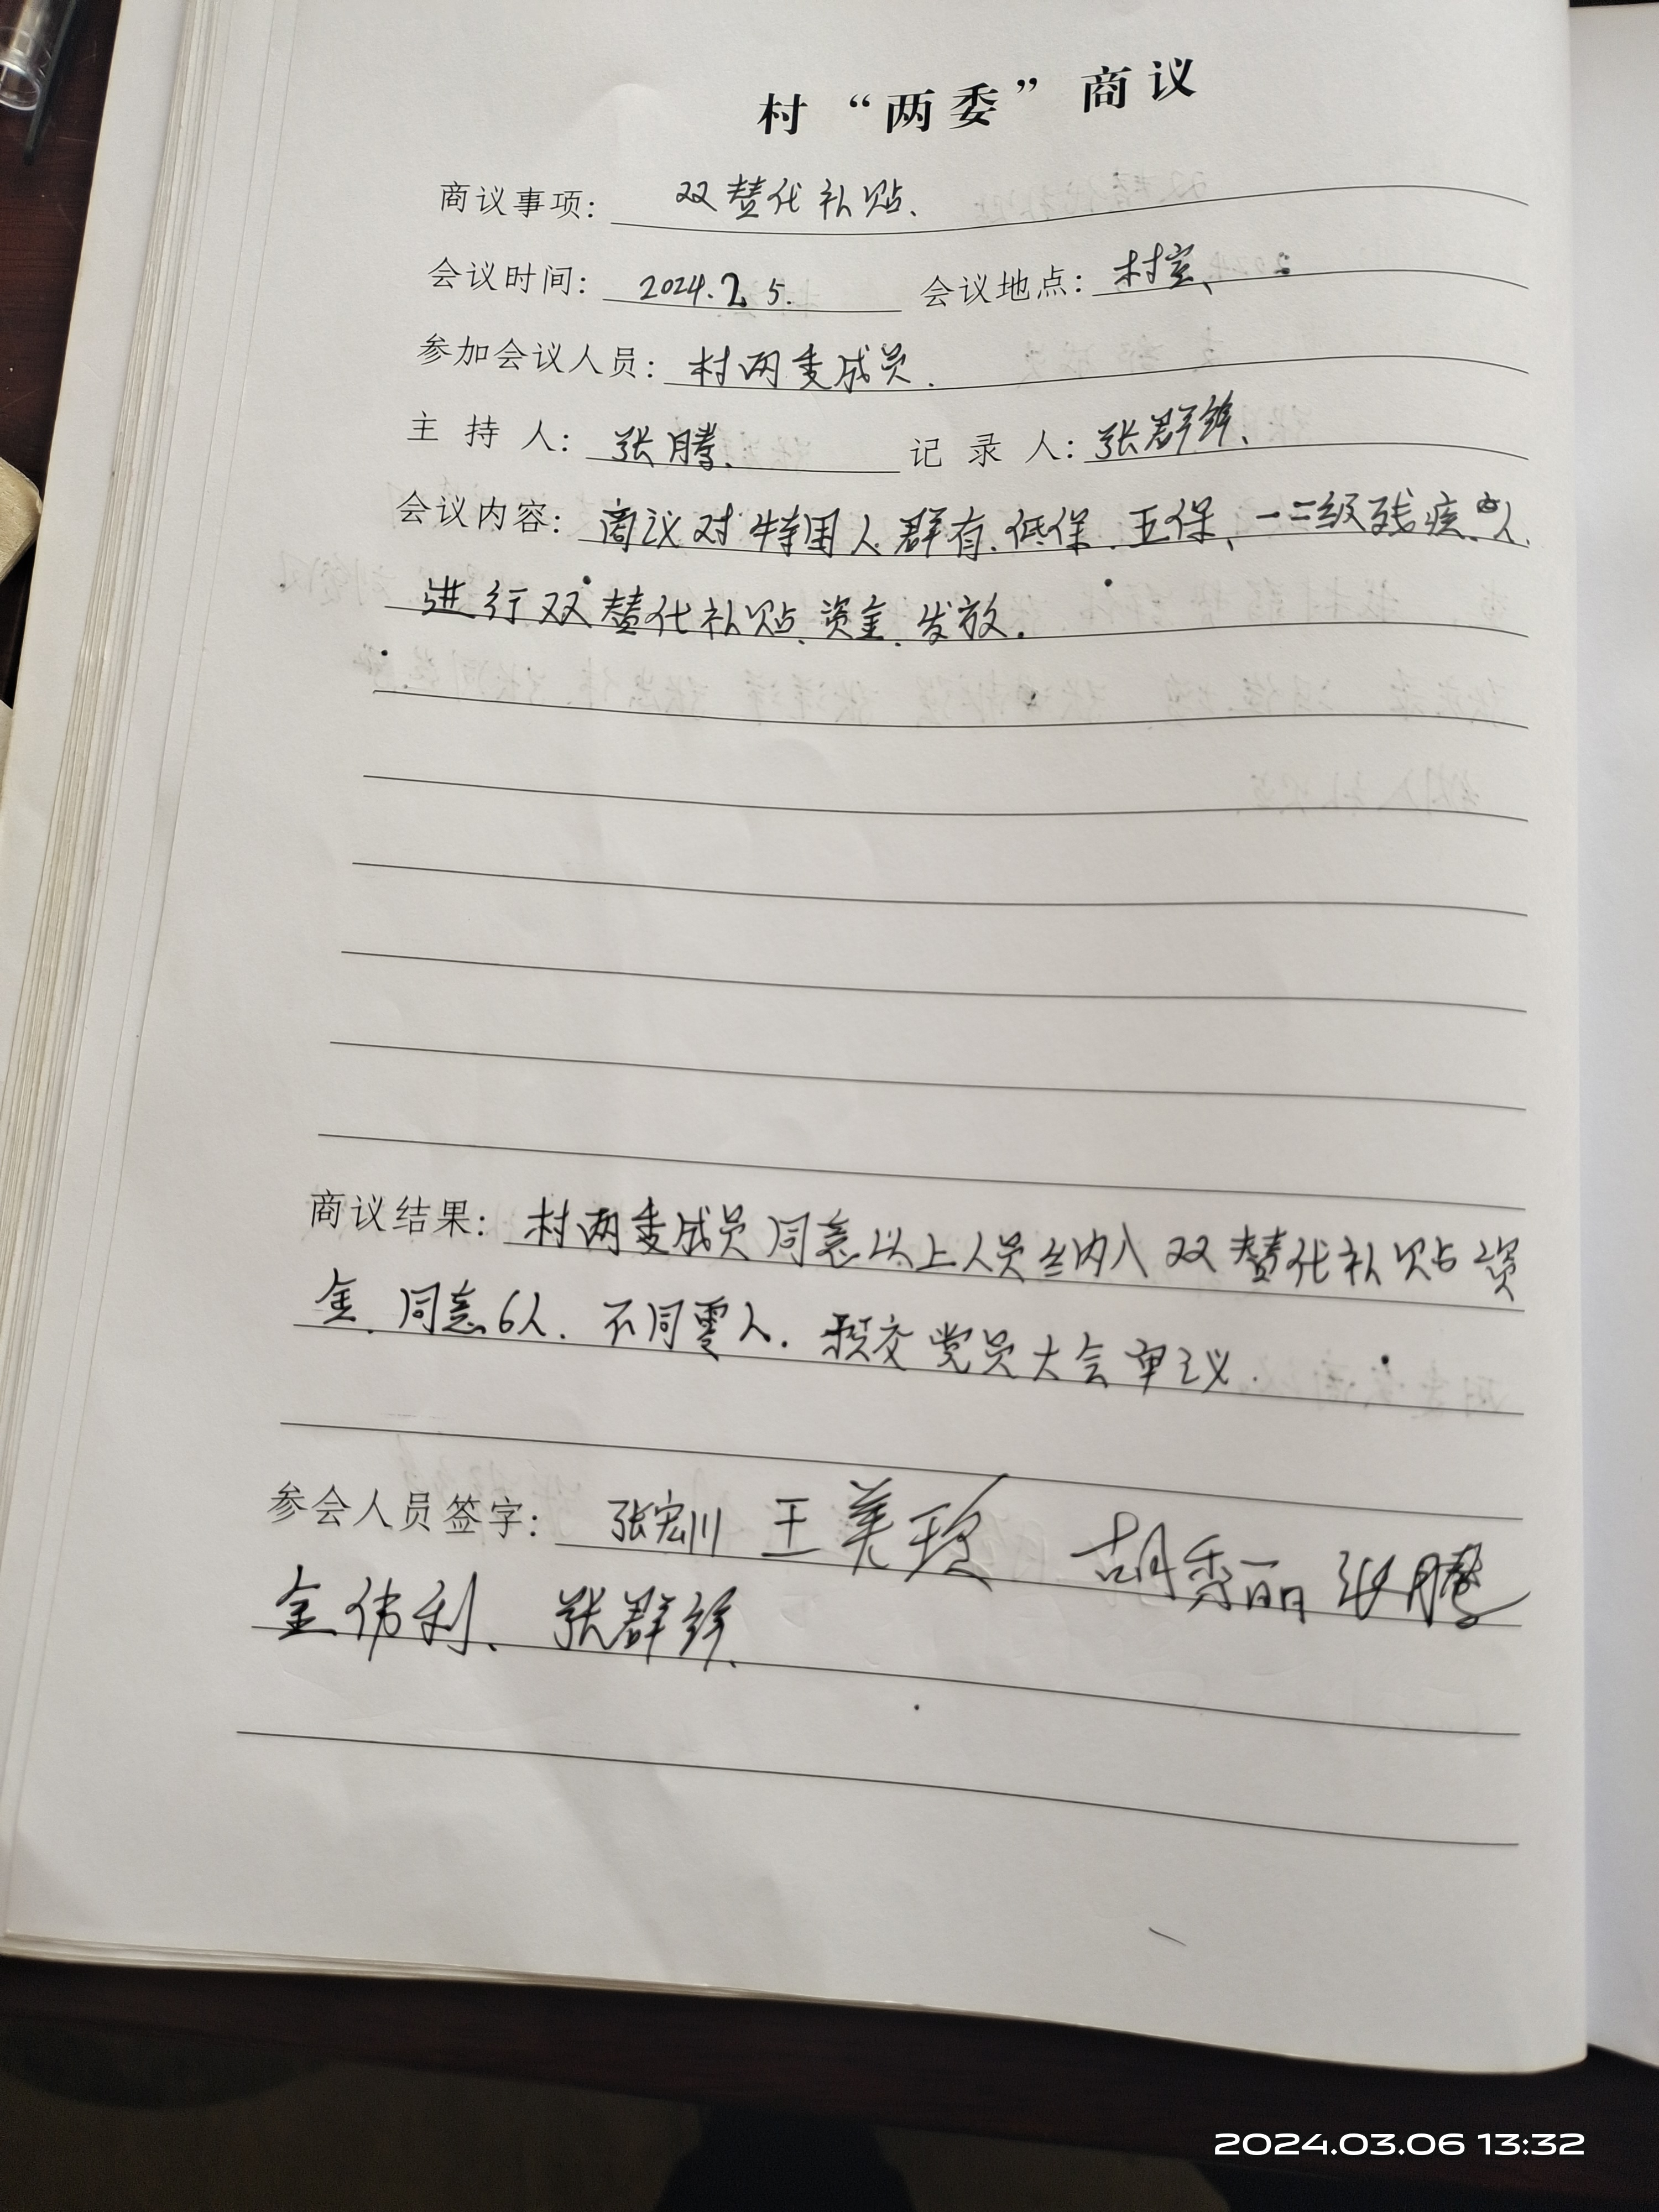 村“两委”商议
商议事项: 双替代补贴.
会议时间: 2024.2.5. 会议地点: 村室、
参加会议人员: 村两委成员.
主 持 人: 张腾. 记 录 人: 张群
会议内容: 商议对特困人群有.低保.五保、一二级残疾.人
进行双替代补贴.资金.发放.
商议结果: 村两委成员同意以上人员纳入双替代补贴资
金.同意6人.不同零人.预交党员大会审议.
参会人员签字: 张宏川 王美玲 胡秀丽 张腾
金伟利、张群
2024.03.06 13:32